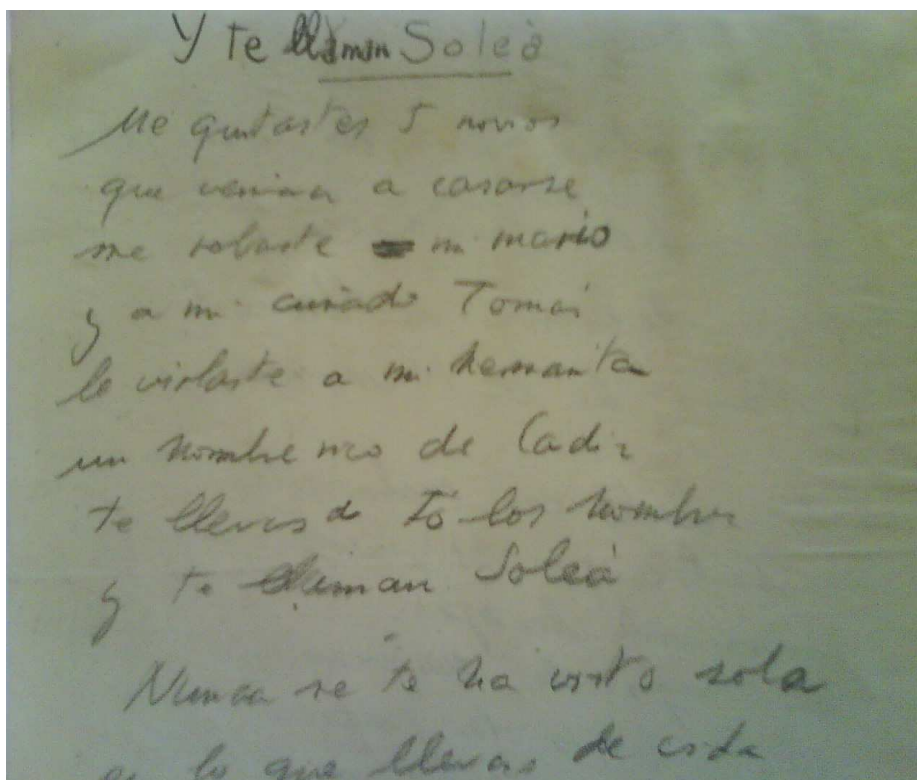 Y te llaman Soleá
Me quitastes 5 novios
que venian a casarse
me robaste mi mario
y a mi cuñado Tomás
le violaste a mi hermanita
un hombre rico de Cadiz
te llevas de tó los hombres
y te llaman Soleá
Nunca se te ha visto sola
en lo que llevas de vida